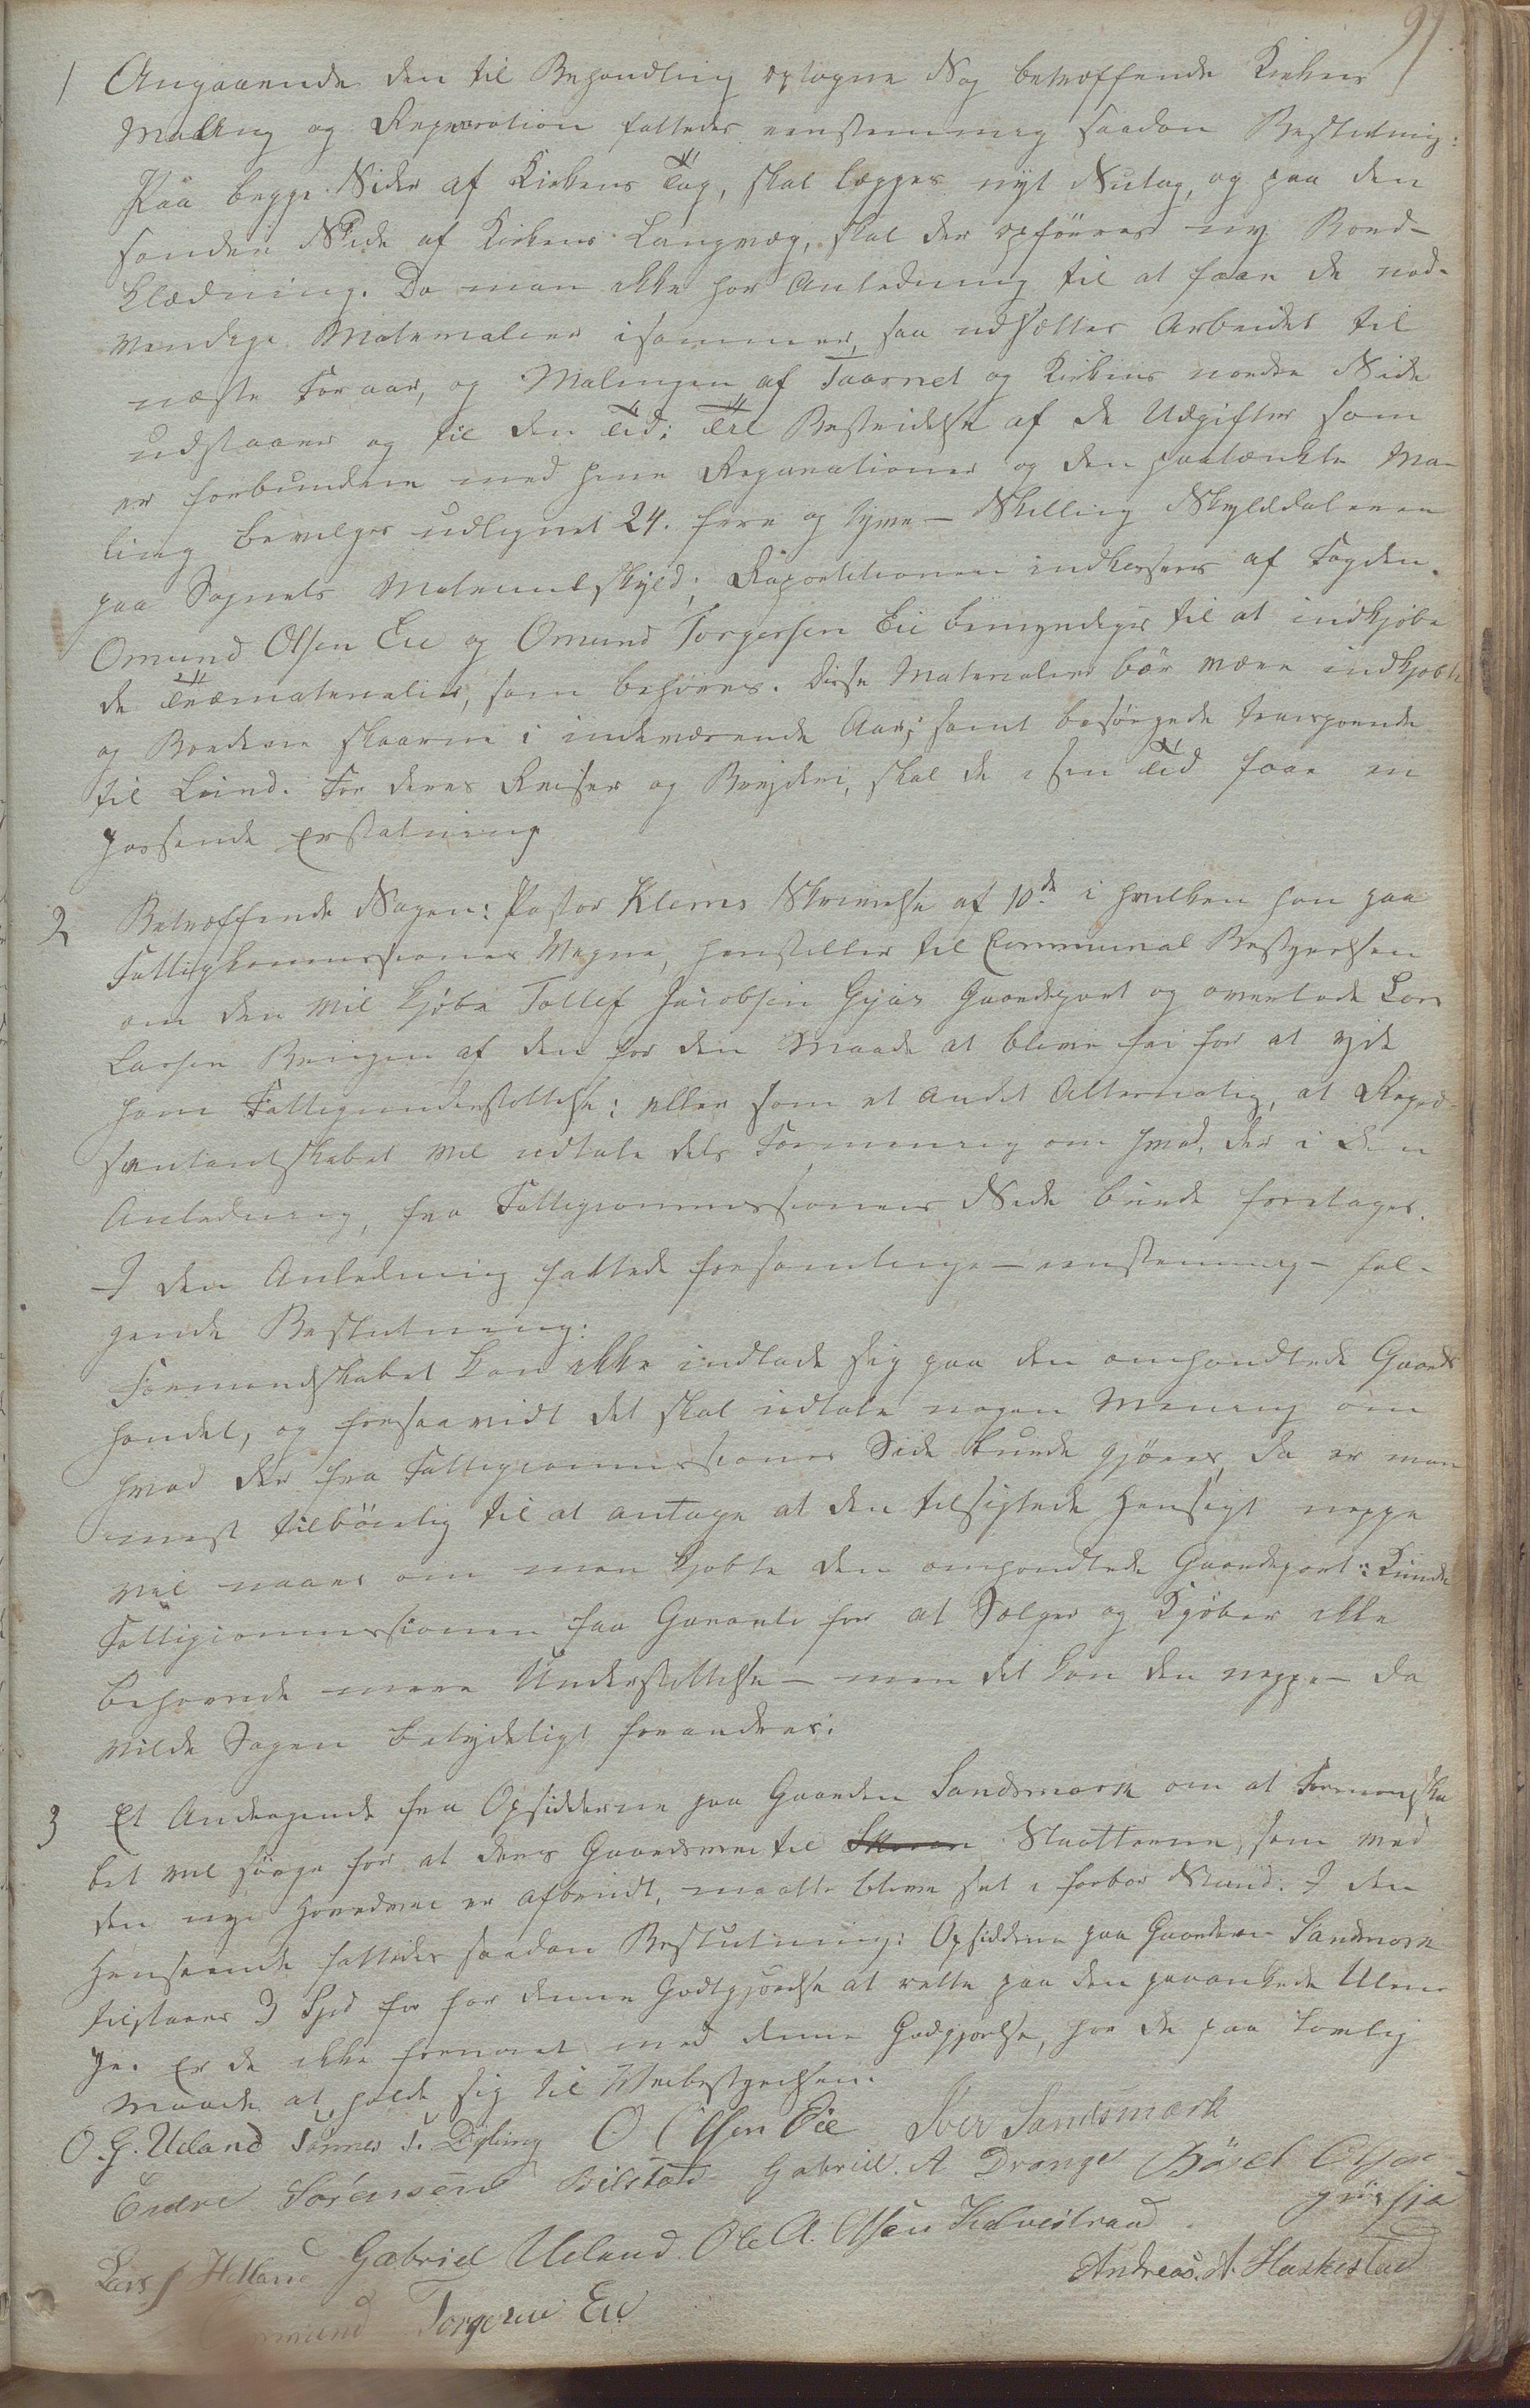 97.
1 Angaaende den til Behandling optagne Sag betræffende Kirkens
Maling og Reparation fattedes eenstemmig saadan Beslutning:
Paa begge Sider af Kirkens Tag, skal lægges nyt Sutag, og paa den
søndre Side af Kirkens Langvæg, skal der opføres ny Bord-
klædning. Da man ikke har Anledning til at faae de nød-
vendige Materialier isommer, saa udsættes Arbeidet til
næste Foraar, og Malingen af Taarnet og Kirkens nordre Side
udstaaer og til den Tid; Til Bestridelse af de Udgifter som
er forbundne med hine Reparationer og den paatænkte Ma-
ling bevilges udlignet 24. fire og tyve - Skilling Skylddaleren
paa Sognets Matriculskyld; Repartitionen indkasseres af Fogden.
Omund Olsen Eie og Omund Torgersen Eie bemyndiges til at indkjøbe
de Træmaterialier, som behøves. Disse Materialier bør være indkjøbte
og Bordene skaarne i indeværende Aar; samt besørgede transporerede
til Lund. For deres Reiser og Bryderi, skal de i sin Tid faae en
passende Erstatning
2 Betræffende Sagen: Pastor Klems Skrivelse af 10de i hvilken han paa
Fattigkommissionens Vegne, henstiller til Communal Bestyrelsen
om den vil kjøbe Tollef Jacobsen Gyas Gaardepart og overlade Lars
Larsen Brugen af den for den Maade at blive fri for at yde
ham Fattigunderstøttelse; eller som et andet Alternativ, at Repræ-
sentantskabet vil udtale dets Formening om hvad, der i den
Anledning, fra Fattigcommissionens Side burde foretages.
I den Anledning fattede forsamlinge - eenstemmig - føl-
gende Beslutning:
Formandskabet kan ikke indlade sig paa den omhandlede Gaards
handel, og forsaavidt det skal udtale nogen Mening om
hvad der fra Fattigcommissionens Side burde gjøres, da er man
mest tilbøielig til at antage at den tilsigtede Hensigt neppe
vil naaes om man kjøbte den omhandlede Gaardepart; Kunde
Fattigcommissionen faa Garanti for at Sælger og Kjøber ikke
behøvede mere Understøttelse - men det kan den neppe - da
vilde Sagen betydeligt forandres.
3 Et Andragende fra Opsidderne paa Gaarden Sandsmark om at Formandska
bet vil sørge for at deres Gaardsvei til Slaatterne, som ved
den nye Hovedvei er afbrudt, maatte blive sat i forbar Stand. I den
Henseende fattedes saadan Beslutning: Opsidderne paa Gaarden Sandsmark
tilstaaes 3 Spd for for denne Godtgjørelse at rette paa den paaankede Ulem-
pe. Er de ikke fornøiet med denne Godgjørelse, har de paa lovlig
Maade at holde sig til Veibestyrelsen.
O. G. Ueland Tønnes T. Dyling O Olsen Eie Iver Sandsmark
Endre Sørensen Bilstad Gabriel. A Drange Bård Olsen
Lars Helland Gabriel Ueland. Ole A. Olsen Kelvestrand
Andreas. A. Haskestad
Omund Torgersen Eie